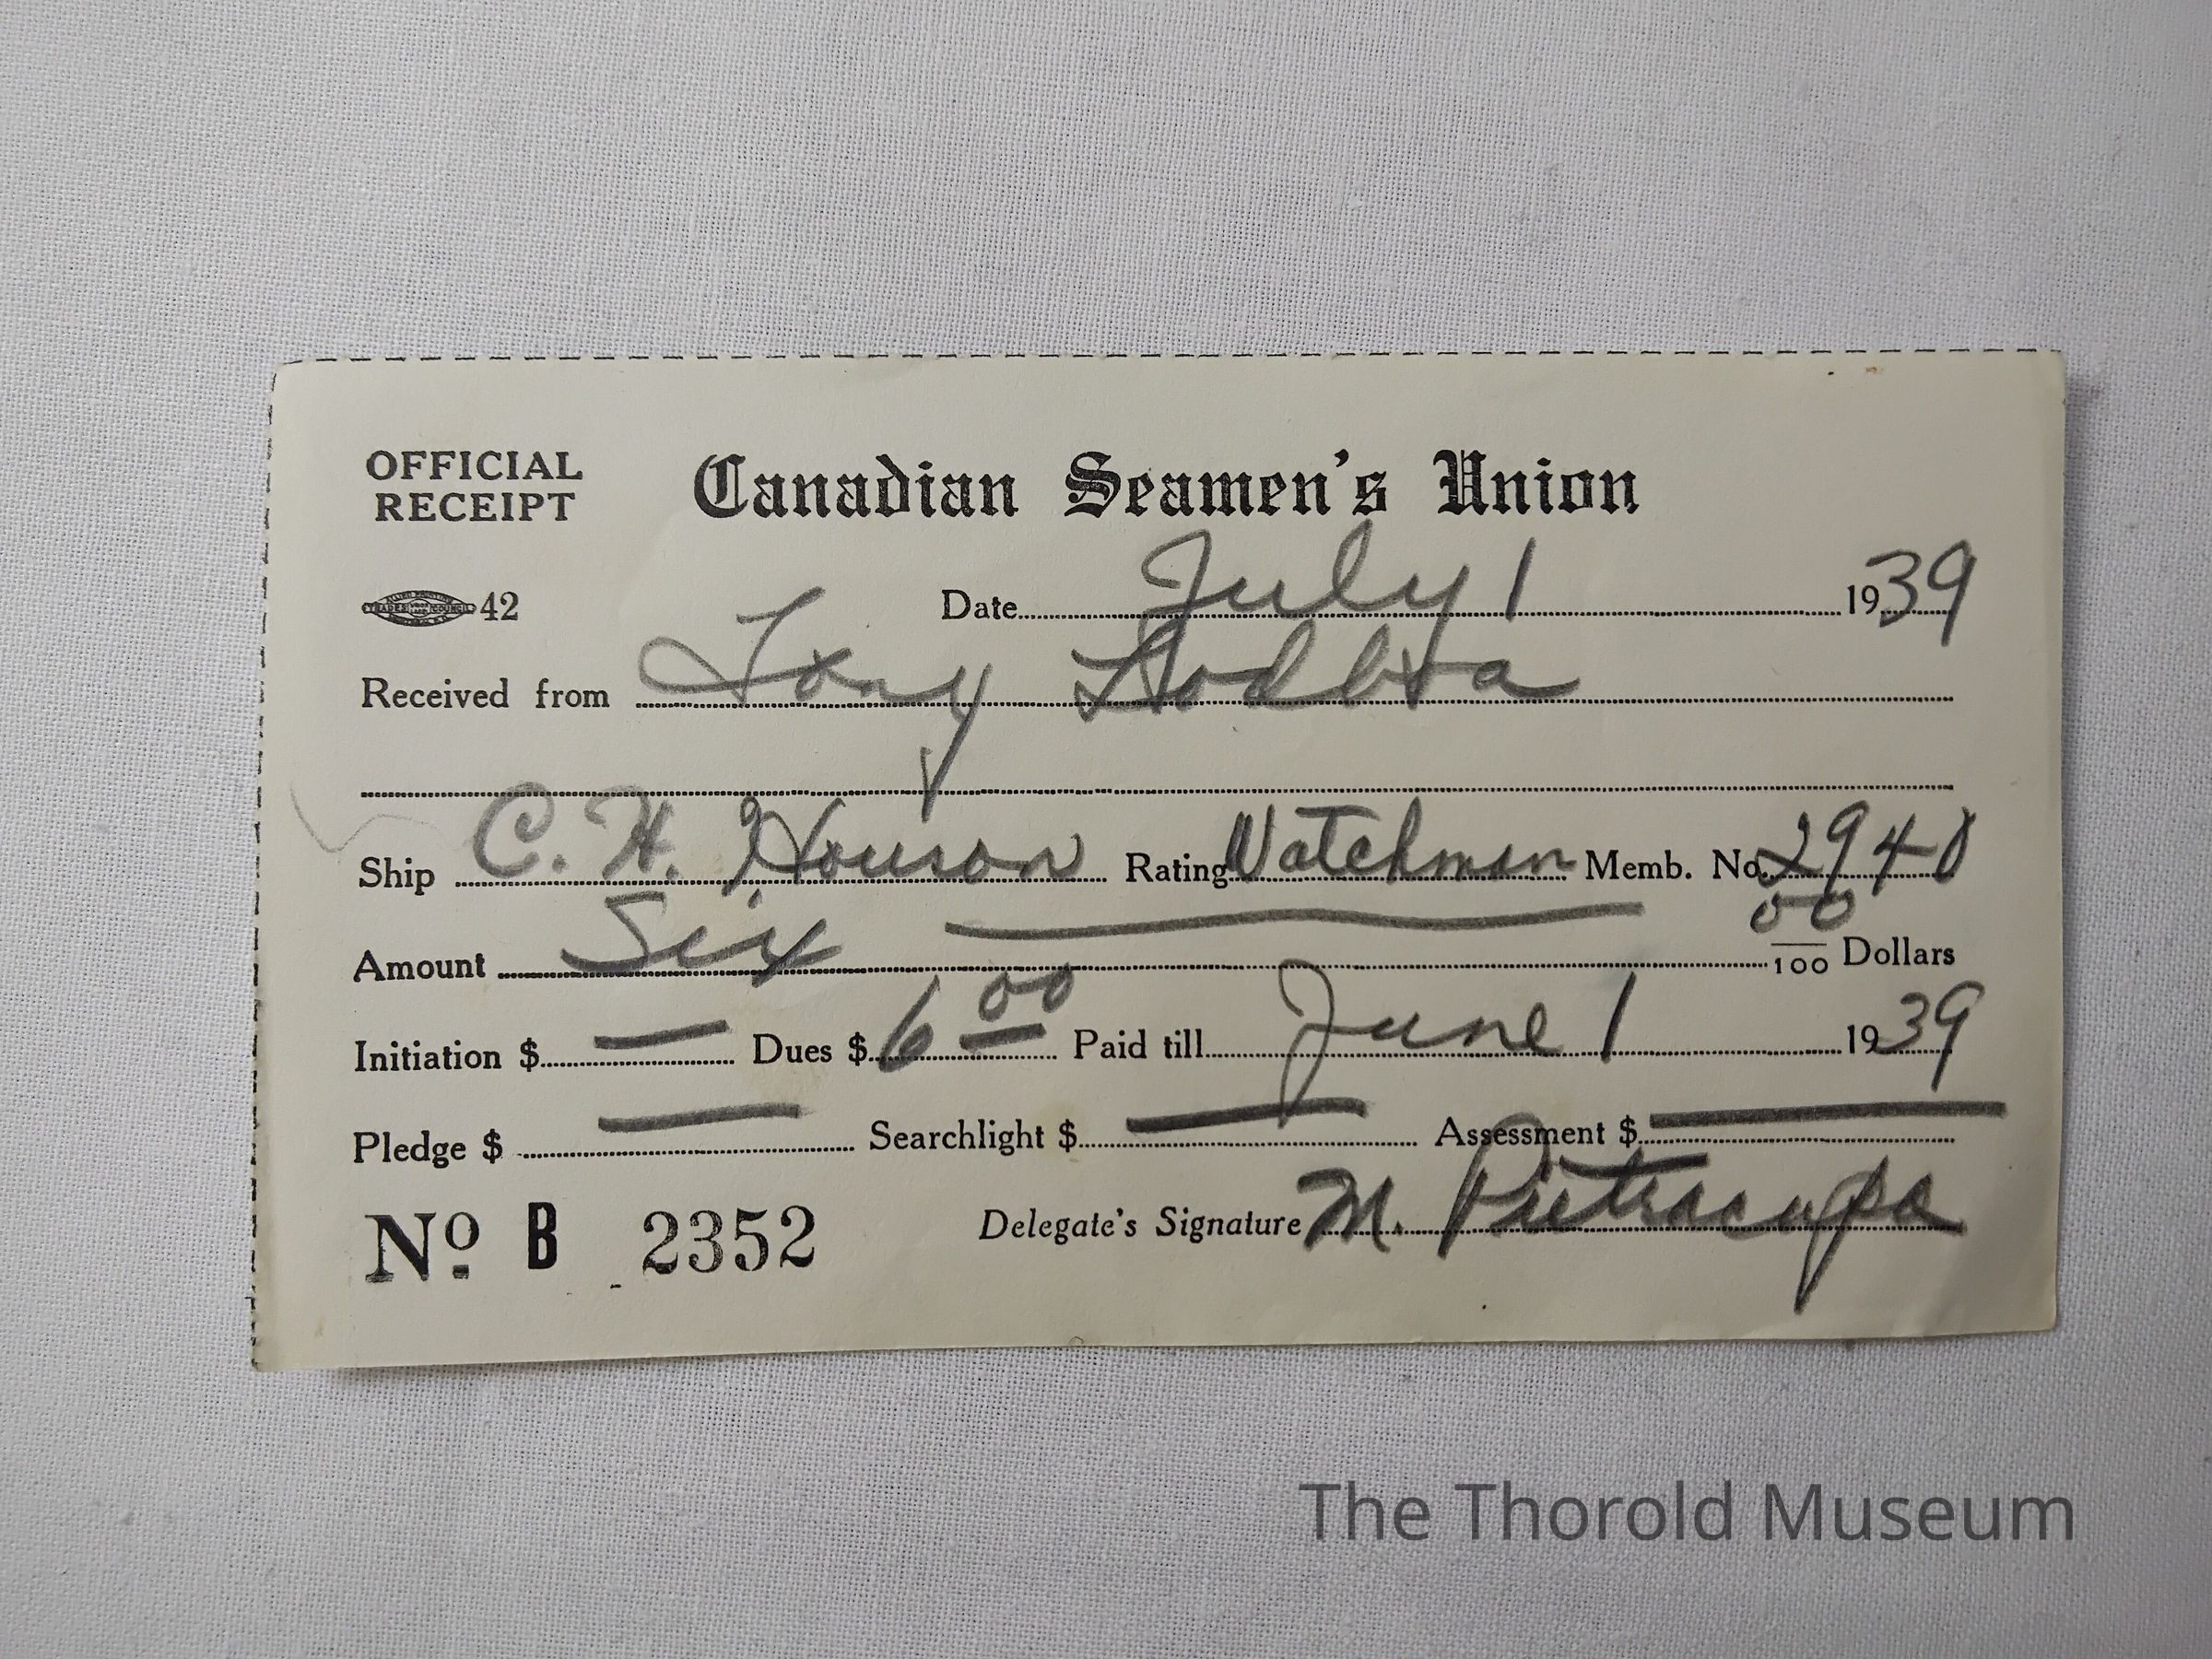 OFFICIAL RECEIPT Canadian Seamen's Union
42 Date July 1 1939
Received from Tony
Ship C. H. Houson Rating Watchman Memb. No. 2940
Amount Six 00/100 Dollars
Initiation $ — Dues $ 6 00 Paid till June 1 1939
Pledge $ — Searchlight $ — Assessment $ —
No B 2352 Delegate's Signature M.
The Thorold Museum